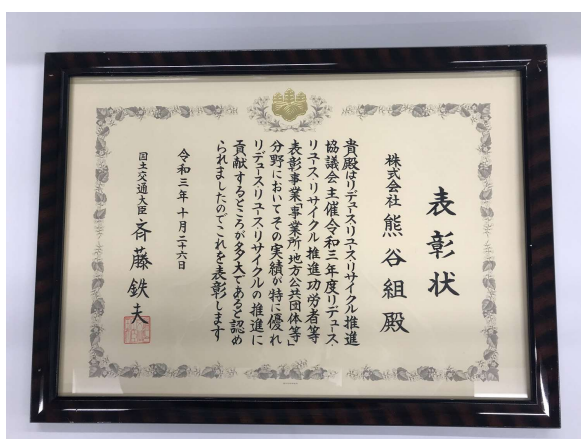 表彰状
株式会社 熊谷組殿
貴殿はリデュースリユースリサイクル推進
協議会主催令和三年度リデュース
リユース・リサイクル推進功労者等
表彰事業「事業所・地方公共団体等」
分野においてその実績が特に優れ
リデュースリユースリサイクルの推進に
貢献するところが多大であると認め
られましたのでこれを表彰します
令和三年十月二十六日
国土交通大臣 斉藤鉄夫